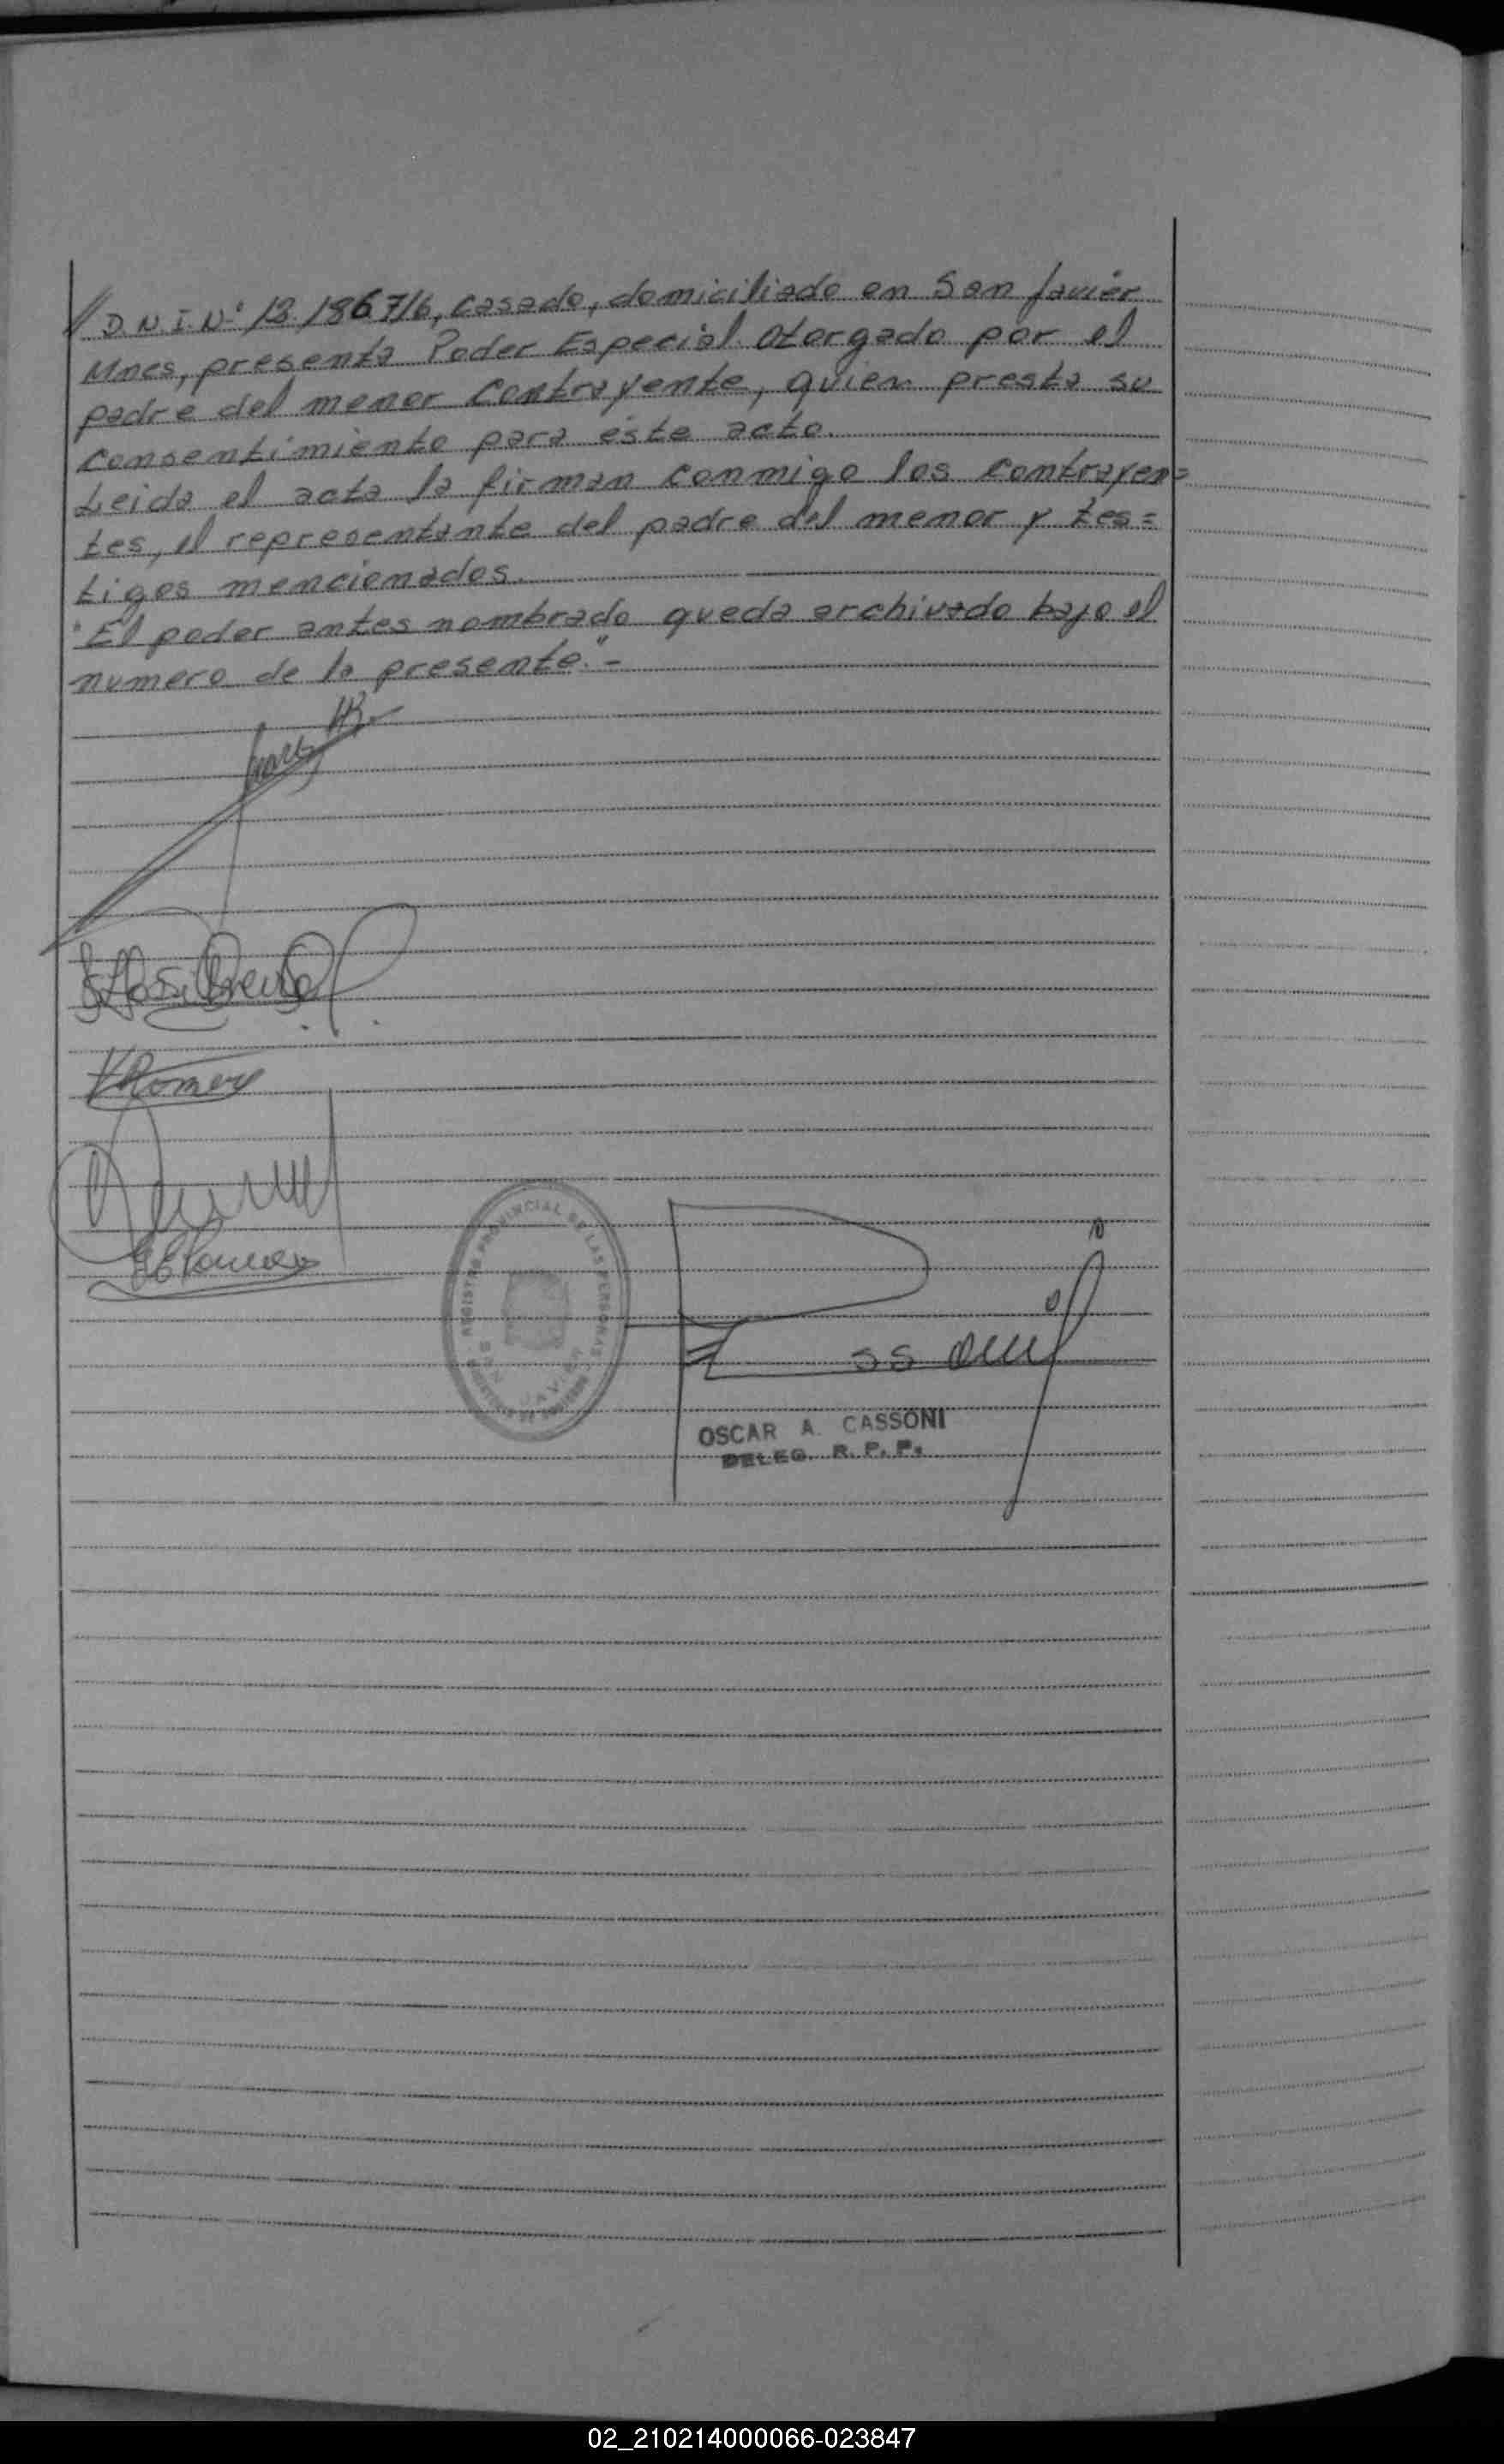 // D.N.I.Nº 13.186.716, casado, domiciliado en San Javier
Mnes, presenta Poder Especial otorgado por el
padre del menor contrayente, quien presta su
consentimiento para éste acto.
Leida el acta la firman conmigo los contrayen=
tes, el representante del padre del menor y tes=
tigos mencionados.
"El poder antes nombrado queda archivado bajo el
numero de la presente."-
REGISTRO PROVINCIAL DE LAS PERSONAS
OSCAR A. CASSONI
DELEG. R. P. P.
02_210214000066-023847